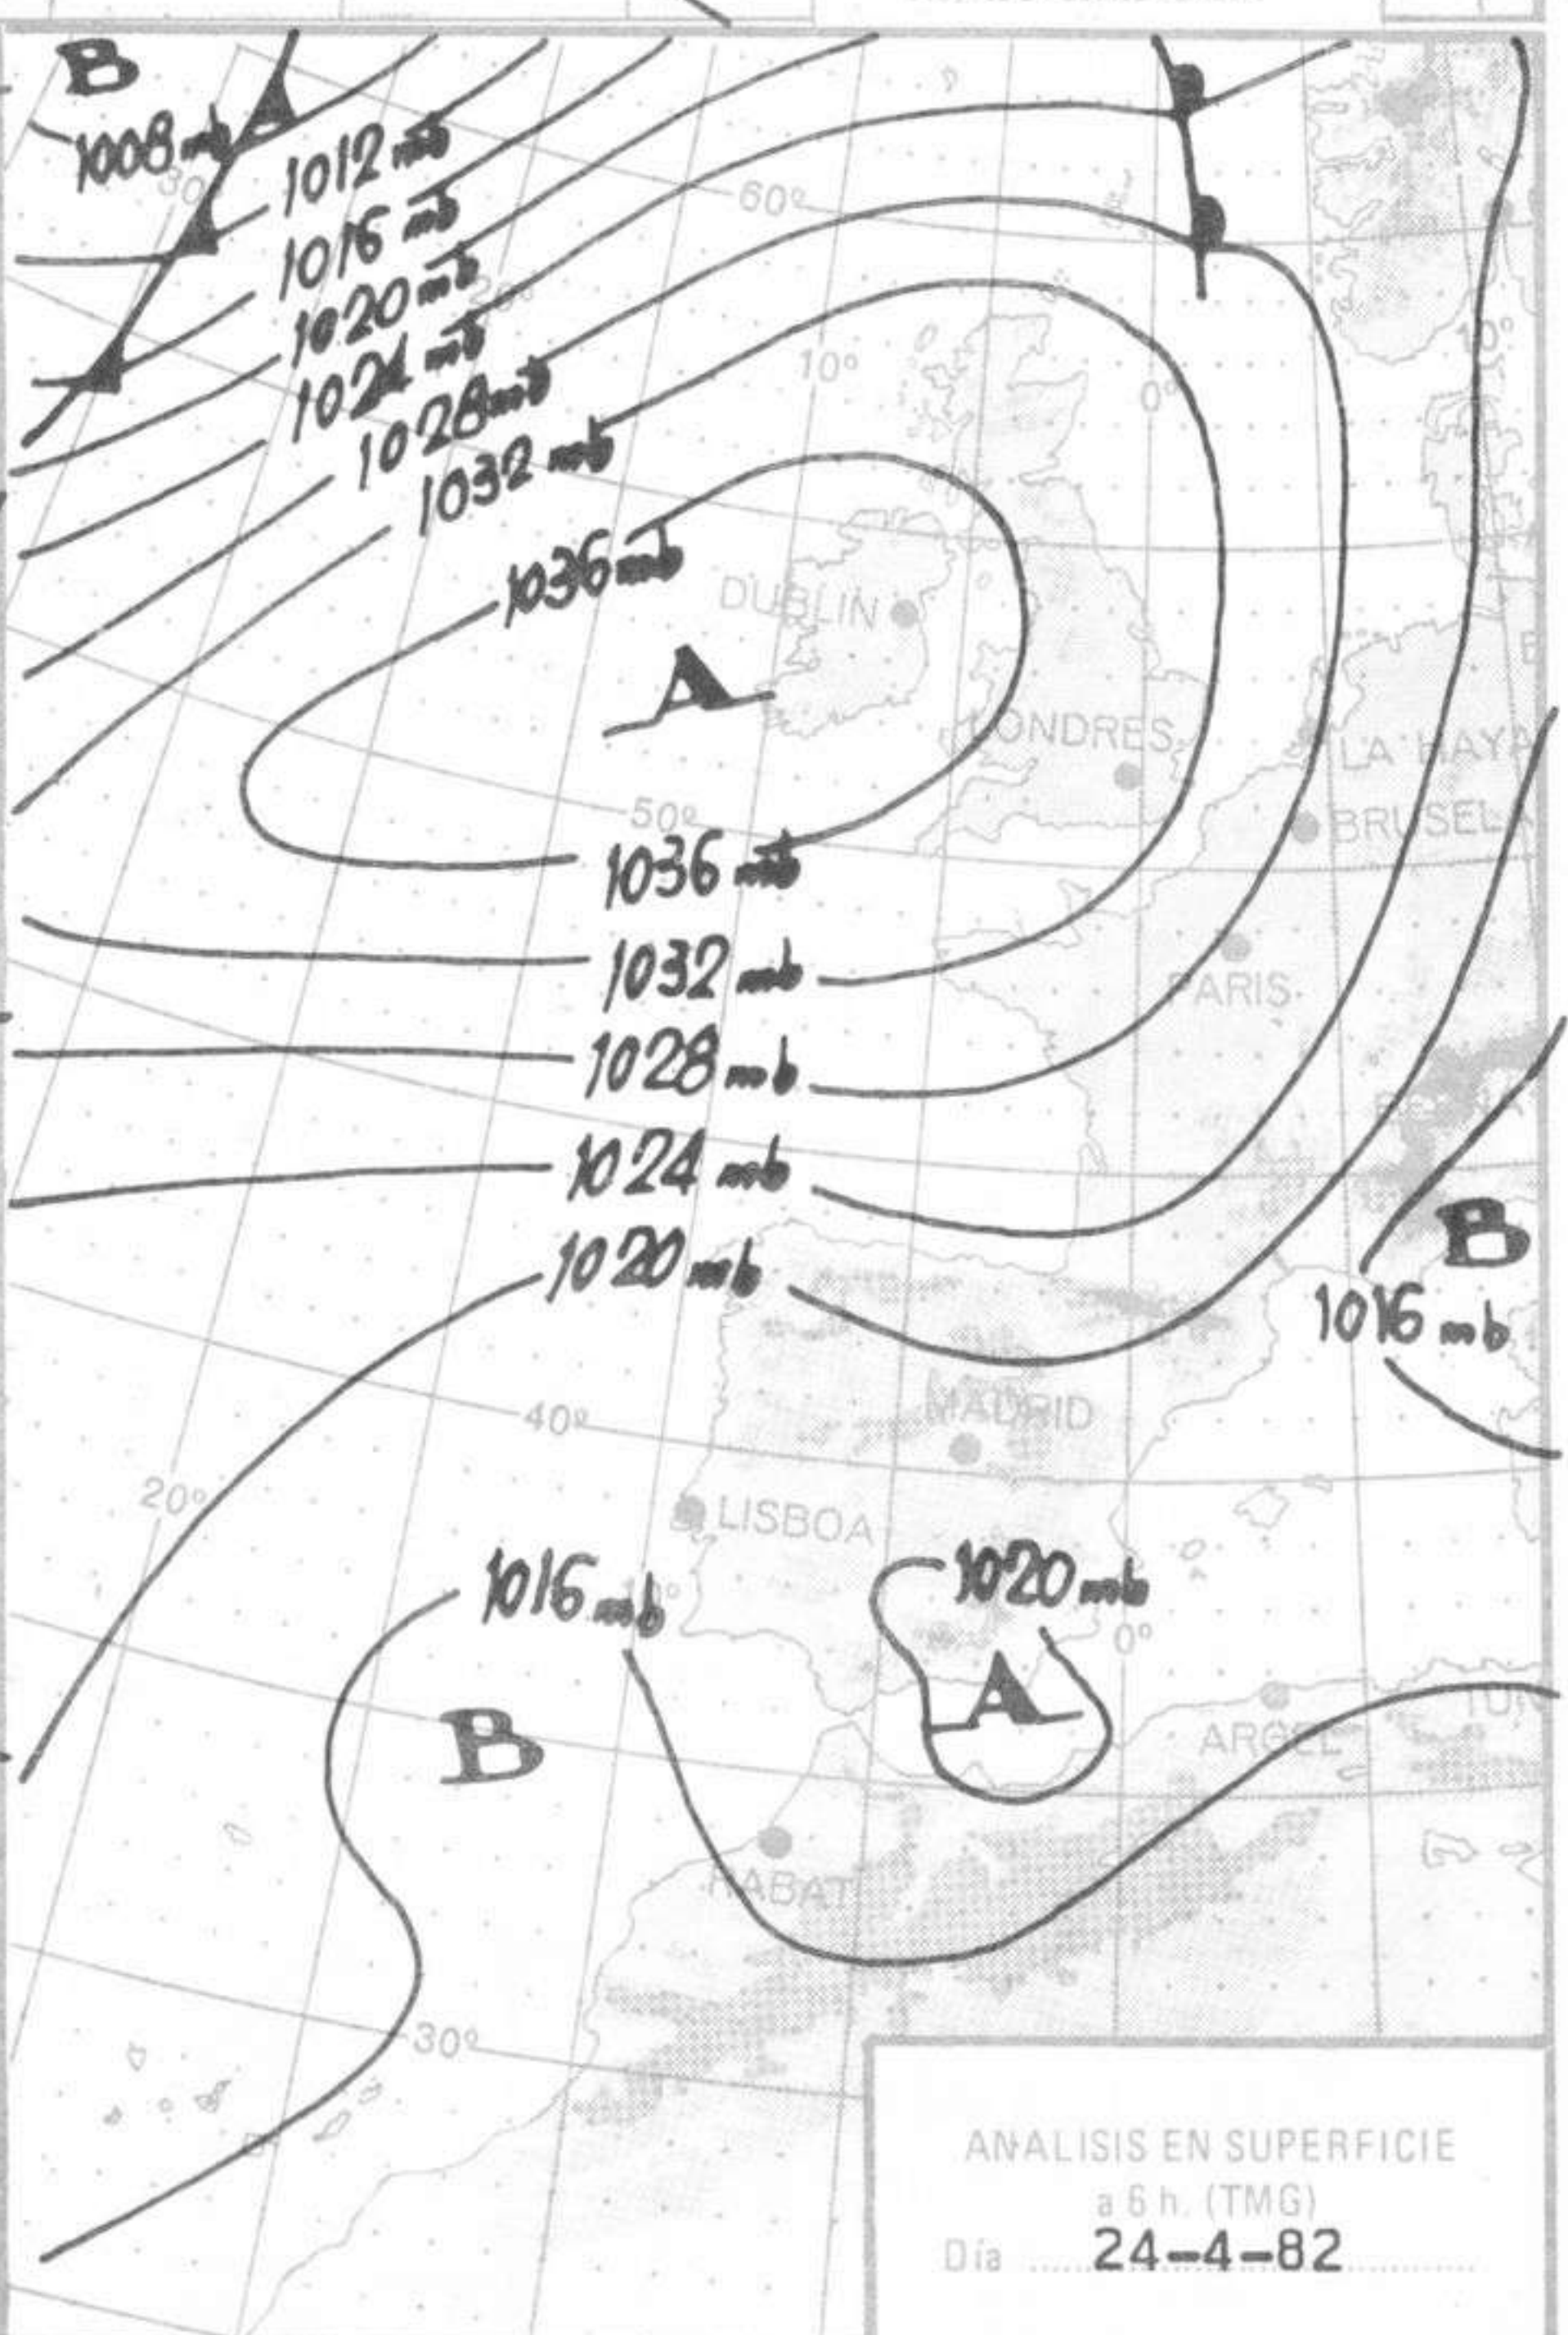 B
1008 mb
1012 mb
30
1016 mb
60º
1020 mb
20º
1024 mb
10º
10º
1028 mb
0º
1032 mb
1036 mb
DUBLIN
A
LONDRES
LA HAYA
50º
BRUSEL
1036 mb
1032 mb
PARIS
1028 mb
1024 mb
B
1020 mb
1016 mb
40º
MADRID
20º
LISBOA
1016 mb
1020 mb
0º
A
B
ARGEL
TUN
RABAT
30º
ANALISIS EN SUPERFICIE
a 6 h. (TMG)
Día 24-4-82